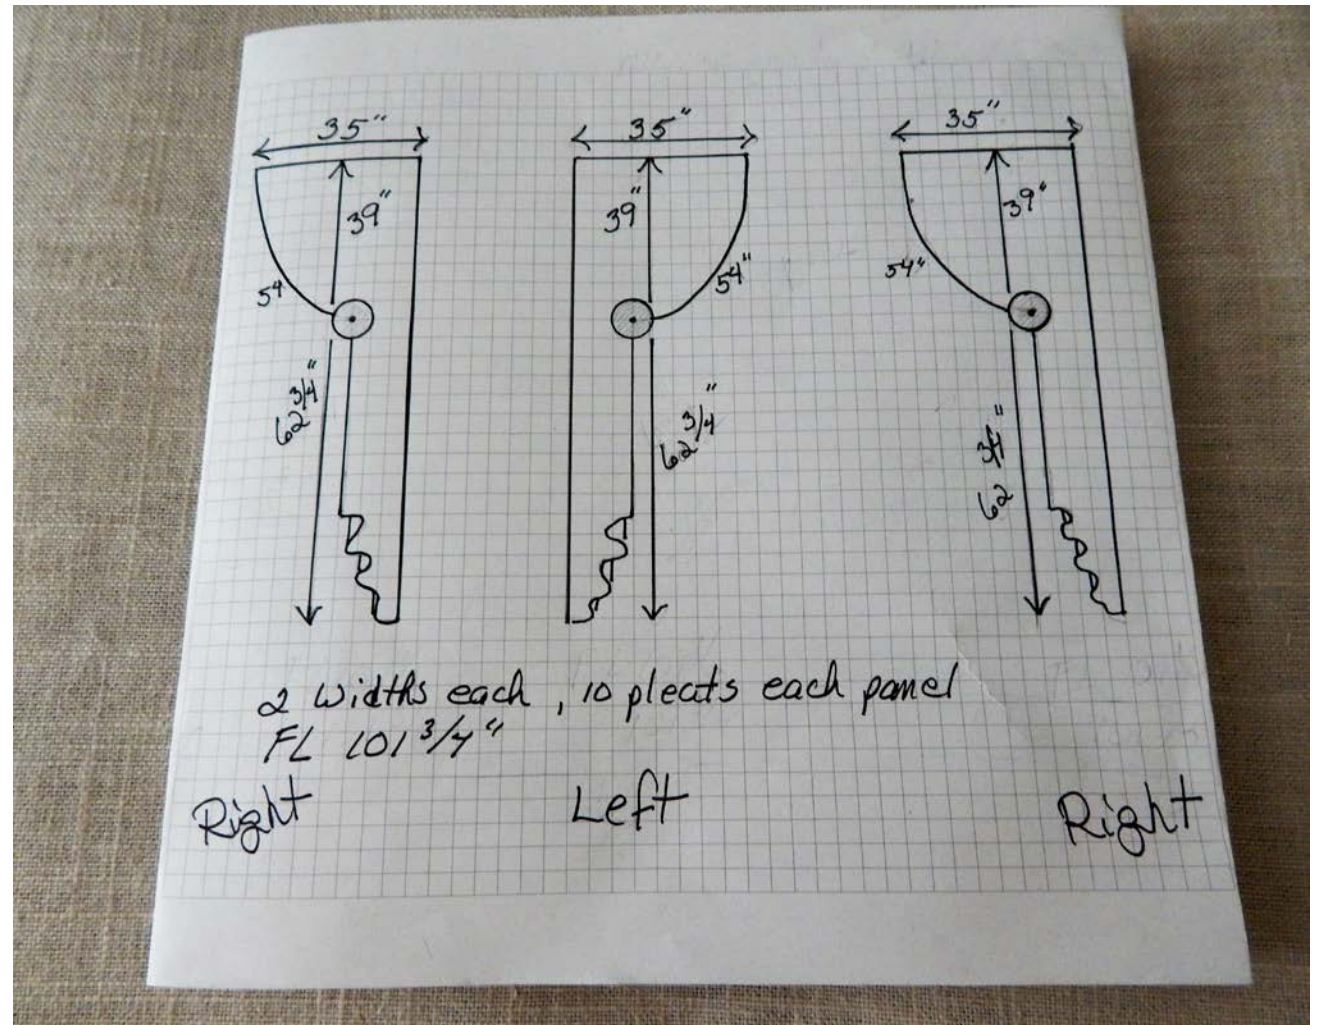 35" 35" 35"
39" 39" 39"
54 54" 54"
62 3/4" 62 3/4" 62 3/4"
2 widths each, 10 pleats each panel
FL 101 3/4"
Right Left Right